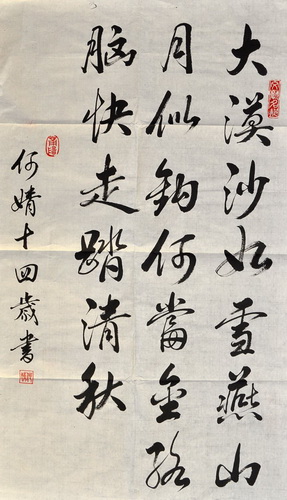 大漠沙如雪燕山
月似鈎何當金络
脑快走踏清秋
何婧十四歲書